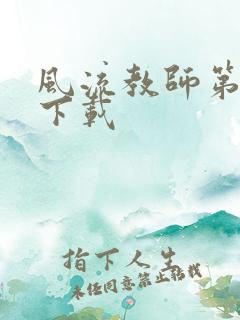 风流教师第
下载
指下人生
未经同意禁止转载